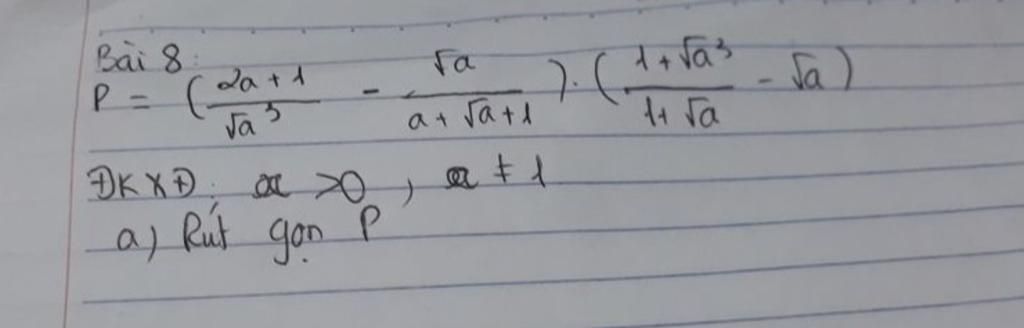 Bài 8:
P = (\frac{2a+1}{\sqrt{a}^3} - \frac{\sqrt{a}}{a+\sqrt{a}+1}) . (\frac{1+\sqrt{a}^3}{1+\sqrt{a}} - \sqrt{a})
ĐKXĐ: a >0, a ≠ 1
a) Rút gọn P